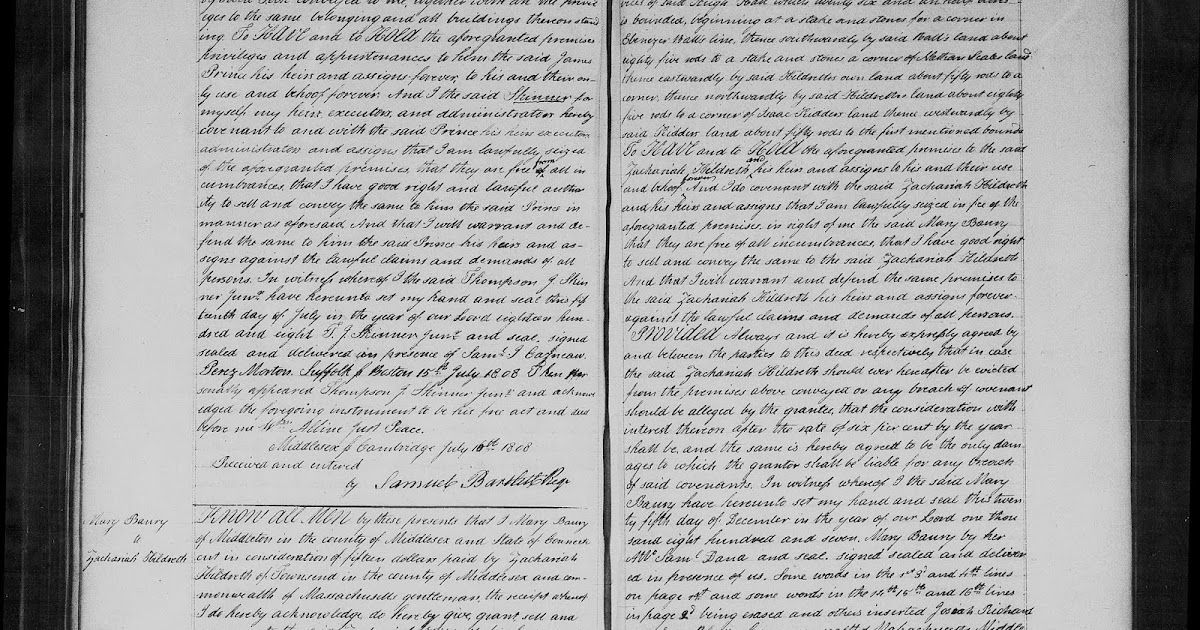 leges to the same belonging and all buildings thereon stand
ing. To Have and to Hold the aforegranted premises
privileges and appurtenances to him the said James
Prince his heirs and assigns forever, to his and their on-
ly use and behoof forever. And I the said Skinner for
myself my heirs, executors, and administrators hereby
covenant to and with the said Prince his heirs executors
administrators and assigns that I am lawfully seized
of the aforegranted premises, that they are free from of all in
cumbrances, that I have good right and lawful author
ity to sell and convey the same to him the said Prince in
manner as aforesaid. And that I will warrant and de-
fend the same to him the said Prince his heirs and as-
signs against the lawful claims and demands of all
persons. In witness whereof I the said Thompson J Skin
ner Junr. have hereunto set my hand and seal this fif
teenth day of July in the year of our Lord eighteen hun-
dred and eight. T. J. Skinner Junr. and seal. signed
sealed and delivered in presence of Saml. J Cazneau.
Perez Morton. Suffolk ss Boston 15th July 1808 Then per
sonally appeared Thompson J. Skinner Junr. and acknow
edged the foregoing instrument to be his free act and deed
before me Wm. Alline Just Peace.
Middlesex ss Cambridge July 16th 1808
Received and entered
by Samuel Bartlett Regr
Mary Baury
to
Zachariah Hildreth
Know all Men by these presents that I Mary Baury
of Middleton in the county of Middlesex and State of Connecti
cut in consideration of fifteen dollars paid by Zachariah
Hildreth of Townsend in the county of Middlesex and com-
monwealth of Massachusetts gentleman, the receipt whereof
I do hereby acknowledge, do hereby give, grant sell and
is bounded, beginning at a stake and stones for a corner in
Ebenezer Wall's line, thence southwardly by said Wall's land about
eighty five rods to a stake and stones a corner of Nathan Scales land
thence eastwardly by said Hildreths own land about fifty rods to a
corner, thence northwardly by said Hildreths land about eighty
five rods to a corner of Isaac Kidders land thence westwardly by
said Kidders land about fifty rods to the first mentioned bounds
To Have and to Hold the aforegranted premises to the said
Zachariah Hildreth and his heirs and assigns to his and their use
and behoof forever. And I do covenant with the said Zachariah Hildreth
and his heirs and assigns that I am lawfully seized in fee of the
aforegranted premises, in right of me the said Mary Baury
that they are free of all incumbrances, that I have good right
to sell and convey the same to the said Zachariah Hildreth
And that I will warrant and defend the same premises to
the said Zachariah Hildreth his heirs and assigns forever
against the lawful claims and demands of all persons.
Provided Always and it is hereby expressly agreed by
and between the parties to this deed respectively that in case
the said Zachariah Hildreth should ever hereafter be evicted
from the premises above conveyed or any breach of covenant
should be alleged by the grantee, that the consideration with
interest thereon after the rate of six per cent by the year
shall be, and the same is hereby agreed to be the only dam
ages to which the grantor shall be liable for any breach
of said covenants. In witness whereof I the said Mary
Baury have hereunto set my hand and seal this twen
ty fifth day of December in the year of our Lord one thou
sand eight hundred and seven. Mary Baury by her
Saml. Dana and seal. signed sealed and deliver
ed in presence of us. Some words in the 1st 3d and 4th lines
on page and some words in the 14th 15th and 16th lines
in page 2d being erased and others inserted Josiah Richard
Massachusetts Middle